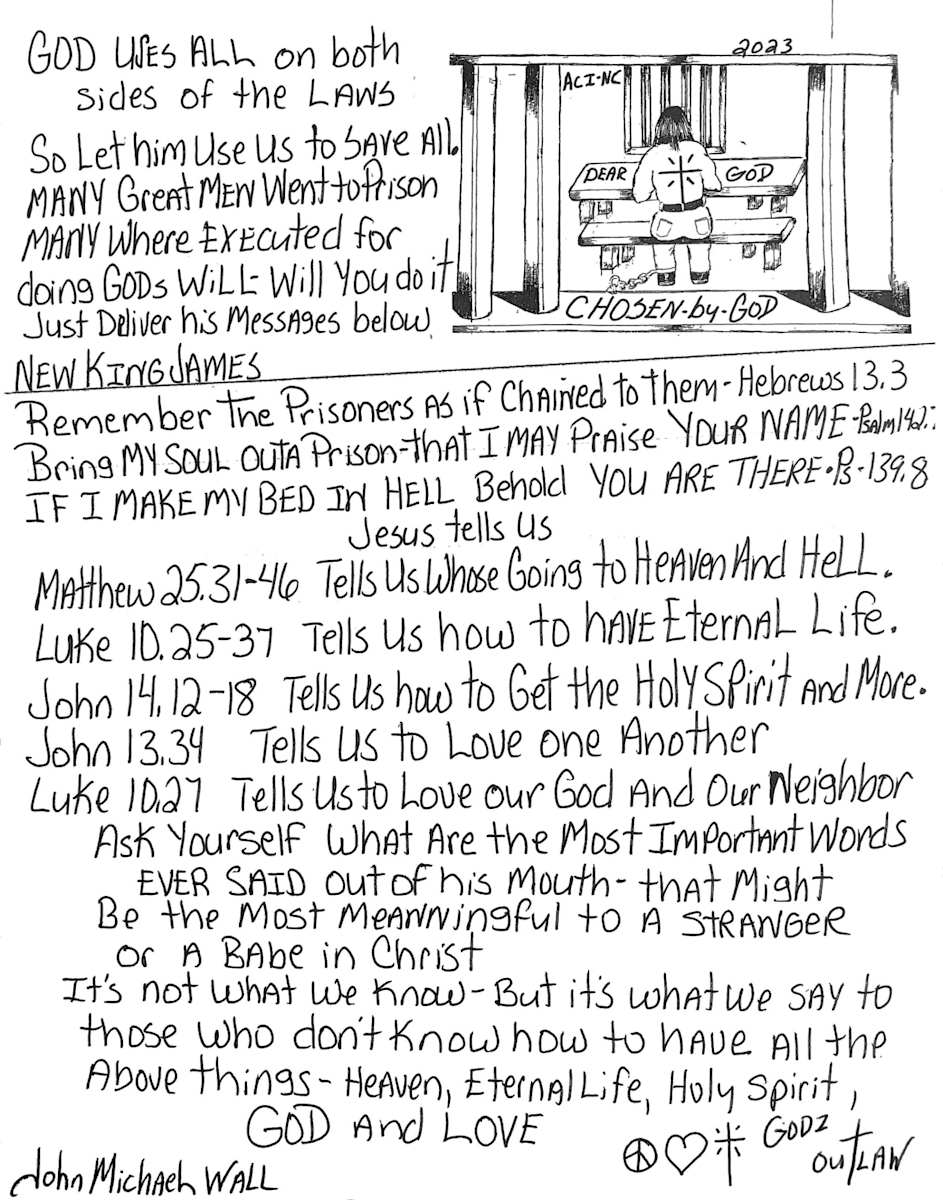 GOD USES ALL on both
sides of the LAWS
So Let him Use Us to SAVE All.
MANY GreAT MEN Went to Prison
MANY Where EXECUTED for
doing GODs WILL- Will You do it
Just Deliver his MessAges below
2023
ACI-NC
DEAR GOD
CHOSEN-by-GOD
NEW KING JAMES
Remember The Prisoners As if ChAined to them - Hebrews 13.3
Bring MY SOUL OUTA Prison-that I MAY PrAise YOUR NAME-PsAlm 142.7
IF I MAKE MY BED IN HELL Behold YOU ARE THERE·Ps-139.8
Jesus tells us
MAtthew 25.31-46 Tells Us Whose Going to HeAven And HeLL.
Luke 10.25-37 Tells Us how to hAVE EternAL Life.
John 14.12-18 Tells Us how to Get the Holy SPirit And More.
John 13.34 Tells US to Love one Another
Luke 10.27 Tells Us to Love our God And Our Neighbor
Ask Yourself WhAt Are the Most ImportAnt Words
EVER SAID out of his Mouth - thAt Might
Be the Most MeANNingful to A STRANGER
or A BAbe in Christ
It's not WhAt We Know - But it's whAt we SAY to
those who don't Know how to hAve All the
Above things - HeAven, EternAl Life, Holy Spirit,
GOD And LOVE
GODZ
OUTLAW
John MichAeL WALL